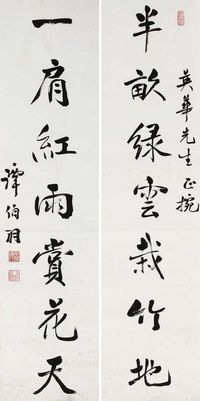 英華先生正捥
半畝緑雲栽竹地
一肩紅雨賞花天
譚伯羽